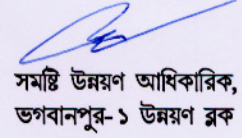 সমষ্টি উন্নয়ণ আধিকারিক,
ভগবানপুর- ১ উন্নয়ণ ব্লক